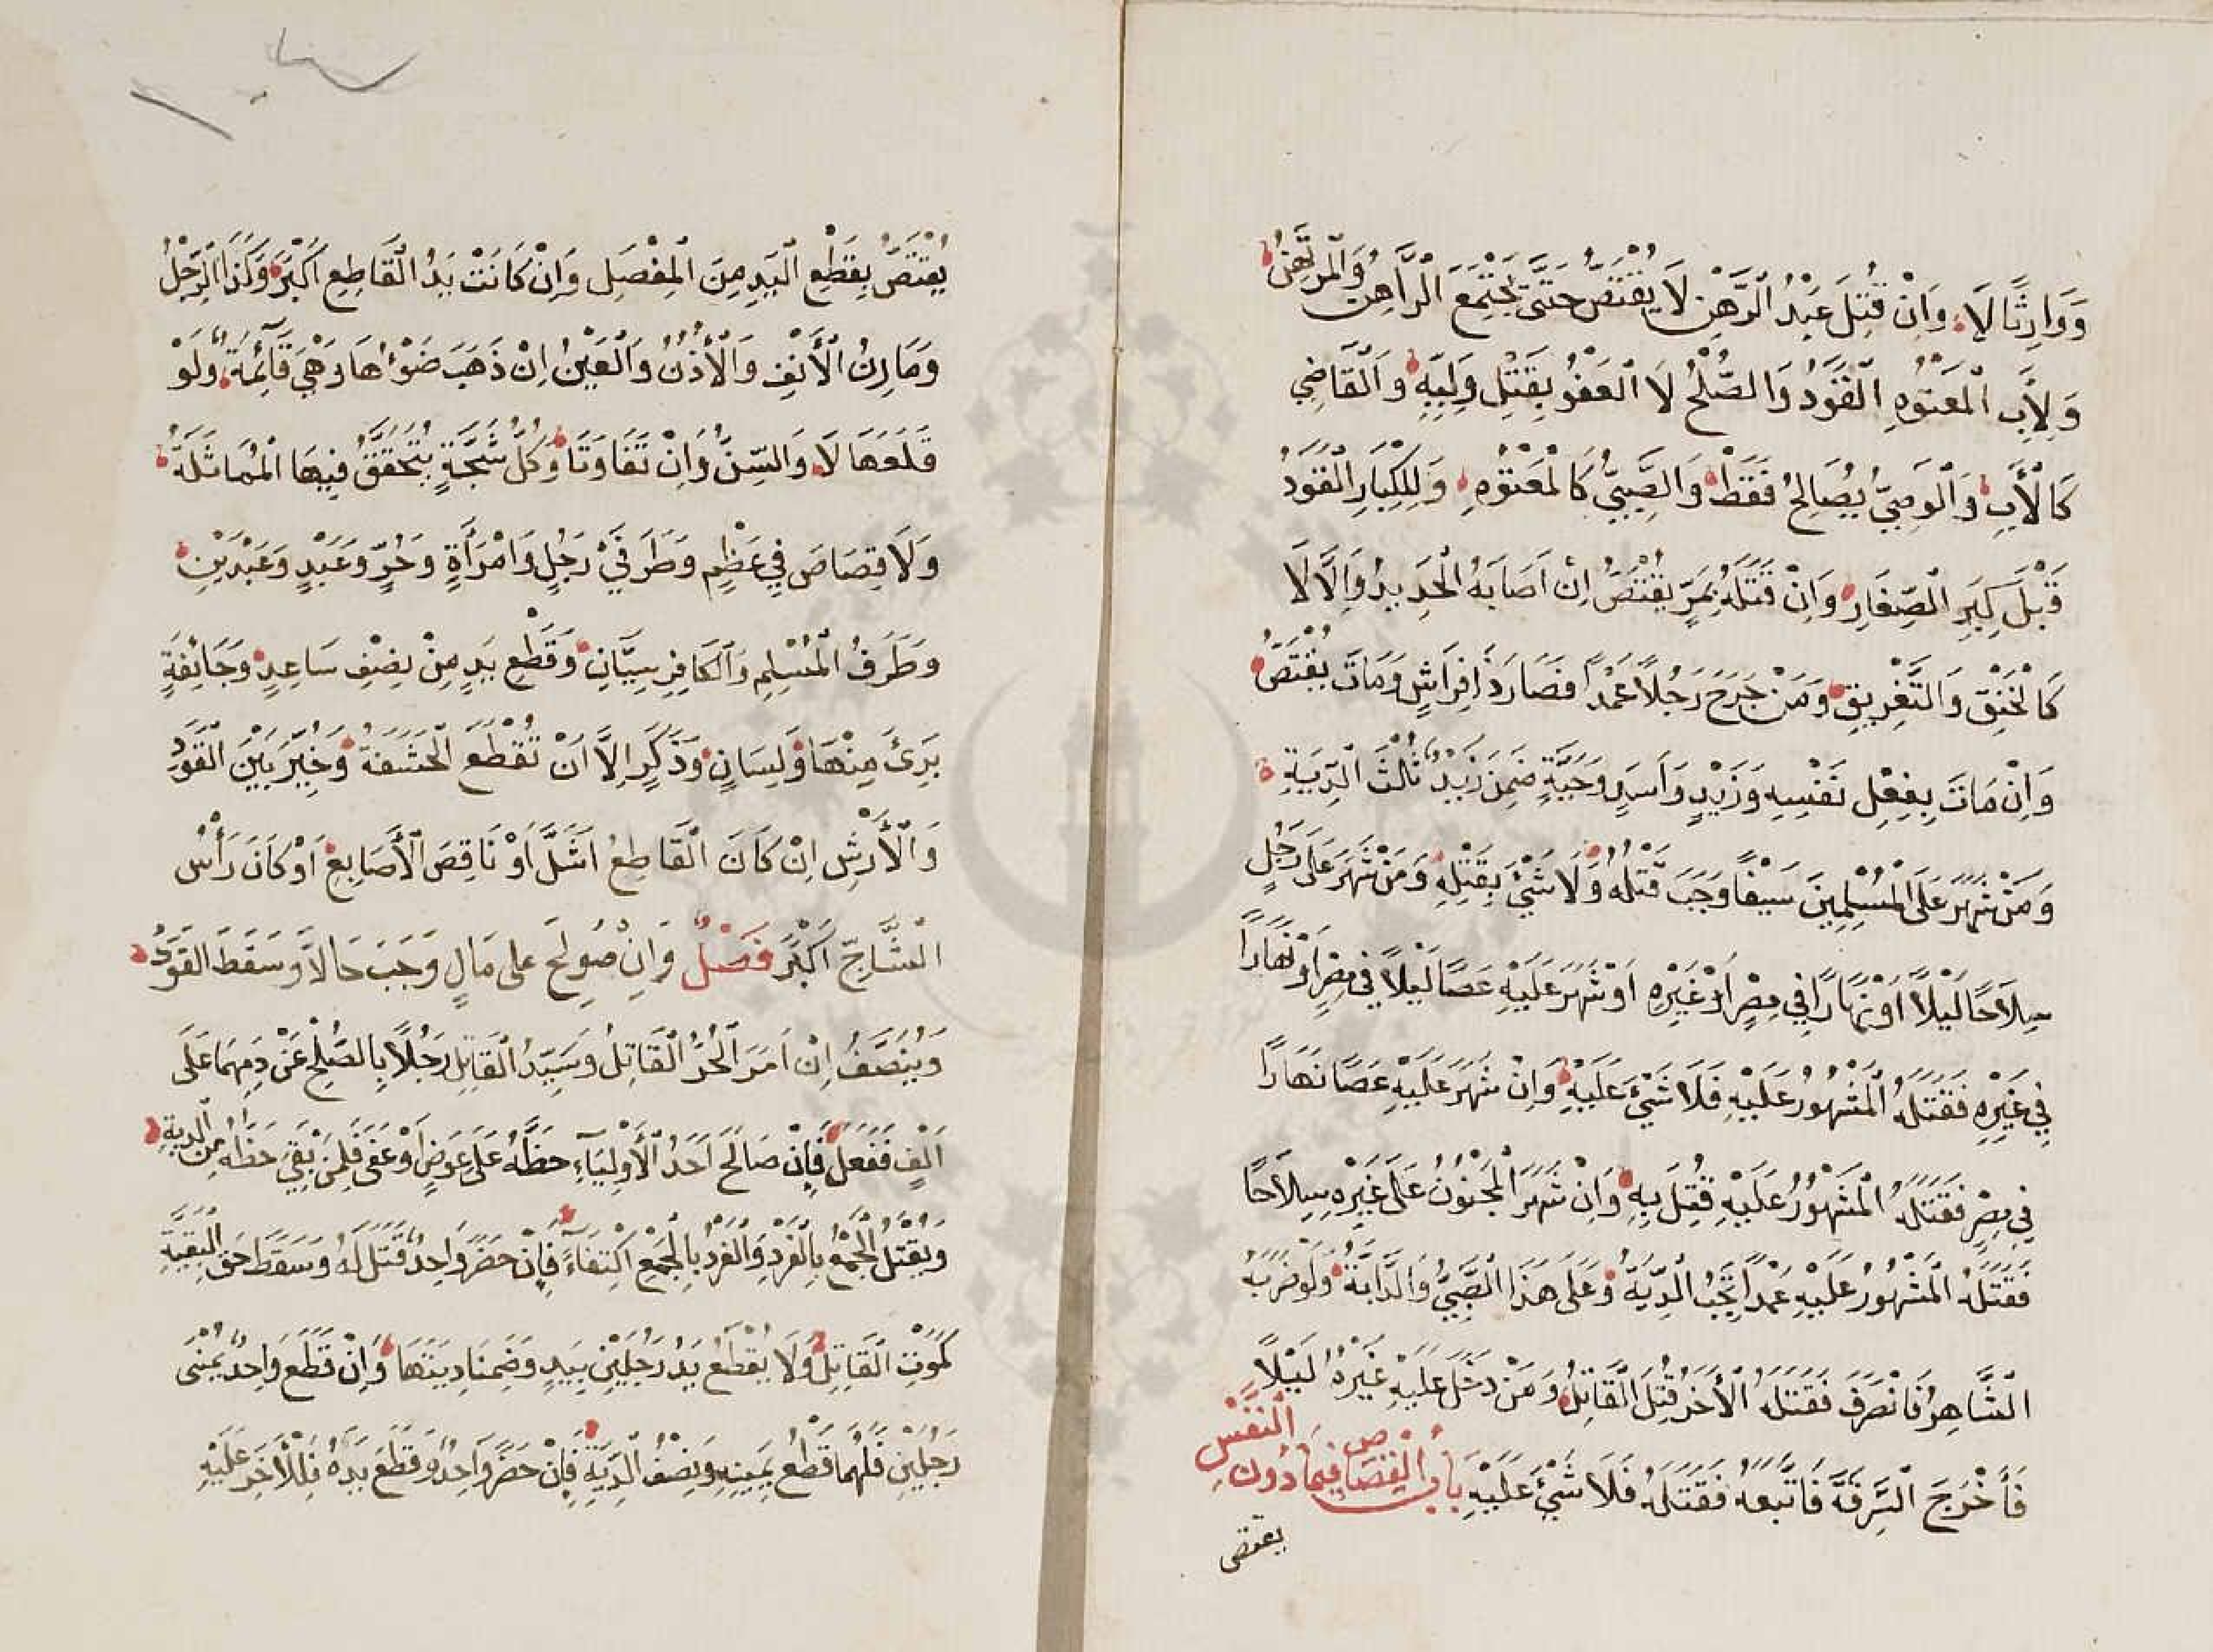 وَوَارِثًا لَا وَاِنْ قُتِلَ عَبْدُ الرَّهْنِ لَا يُقْتَصُّ حَتَّى يَجْتَمِعَ الرَّاهِنُ وَالْمُرْتَهِنُ
وَلِأَبِ الْمَعْتُوْهِ الْقَوَدُ وَالصُّلْحُ لَا الْعَفْوُ بِقَتْلِ وَلِيِّهِ وَالْقَاضِي
كَالْأَبِ وَالْوَصِيُّ يُصَالِحُ فَقَطْ وَالصَّبِيُّ كَالْمَعْتُوْهِ وَلِلْكِبَارِ الْقَوَدُ
قَبْلَ كِبَرِ الصِّغَارِ وَاِنْ قَتَلَهُ بِمَرٍّ يُقْتَصُّ اِنْ اَصَابَهُ الْحَدِيدُ وَاِلَّا لَا
كَالْخَنْقِ وَالتَّغْرِيقِ وَمَنْ جَرَحَ رَجُلًا عَمْدًا فَصَارَ ذَا فِرَاشٍ وَمَاتَ يُقْتَصُّ
وَاِنْ مَاتَ بِفِعْلِ نَفْسِهِ وَزَيْدٍ وَاَسَدٍ وَحَيَّةٍ ضَمِنَ زَيْدٌ ثُلُثَ الدِّيَةِ
وَمَنْ شَهَرَ عَلَى الْمُسْلِمِينَ سَيْفًا وَجَبَ قَتْلُهُ وَلَا شَيْئَ بِقَتْلِهِ وَمَنْ شَهَرَ عَلَى رَجُلٍ
سِلَاحًا لَيْلًا اَوْ نَهَارًا فِي مِصْرٍ اَوْ غَيْرِهِ اَوْ شَهَرَ عَلَيْهِ عَصًا لَيْلًا فِي مِصْرٍ اَوْ نَهَارًا
فِي غَيْرِهِ فَقَتَلَهُ الْمَشْهُورُ عَلَيْهِ فَلَا شَيْئَ عَلَيْهِ وَاِنْ شَهَرَ عَلَيْهِ عَصًا نَهَارًا
فِي مِصْرٍ فَقَتَلَهُ الْمَشْهُوْرُ عَلَيْهِ قُتِلَ بِهِ وَاِنْ شَهَرَ الْمَجْنُوْنُ عَلَى غَيْرِهِ سِلَاحًا
فَقَتَلَهُ الْمَشْهُوْرُ عَلَيْهِ عَمْدًا تَجِبُ الدِّيَةُ وَعَلَى هَذَا الصَّبِيُّ وَالدَّابَّةُ وَلَوْ ضَرَبَهُ
الشَّاهِرُ فَانْصَرَفَ فَقَتَلَهُ الْأَخَرُ قُتِلَ الْقَاتِلُ وَمَنْ دَخَلَ عَلَيْهِ غَيْرُهُ لَيْلًا
فَأَخْرَجَ السَّرِقَةَ فَاتَّبَعَهُ فَقَتَلَهُ فَلَا شَيْئَ عَلَيْهِ بَابُ الْقِصَاصِ فِيْمَا دُوْنَ النَّفْسِ
يقتص
يُقْتَصُّ بِقَطْعِ الْيَدِ مِنَ الْمِفْصَلِ وَاِنْ كَانَتْ يَدُ الْقَاطِعِ اَكْبَرَ وَكَذَا الرِّجْلُ
وَمَارِنُ الْأَنْفِ وَالْأُذُنُ وَالْعَيْنُ اِنْ ذَهَبَ ضَوْءُهَا وَهِيَ قَآئِمَةٌ وَلَوْ
قَلَعَهَا لَا وَالسِّنُّ وَاِنْ تَفَاوَتَا وَكُلُّ شَجَّةٍ يَتَحَقَّقُ فِيهَا الْمُمَاثَلَةُ
وَلَا قِصَاصَ فِي عَظْمٍ وَطَرَفَيْ رَجُلٍ وَامْرَأَةٍ وَحُرٍّ وَعَبْدٍ وَعَبْدَيْنِ
وَطَرَفُ الْمُسْلِمِ وَالْكَافِرِ سِيَّانِ وَقَطْعِ يَدٍ مِنْ نِصْفِ سَاعِدٍ وَجَائِفَةٍ
بَرِئَ مِنْهَا وَلِسَانٍ وَذَكَرٍ اِلَّا اَنْ تُقْطَعَ الْحَشَفَةُ وَخُيِّرَ بَيْنَ الْقَوَدِ
وَالْأَرْشِ اِنْ كَانَ الْقَاطِعُ اَشَلَّ اَوْ نَاقِصَ الْأَصَابِعِ اَوْ كَانَ رَأْسُ
الشَّاجِّ اَكْبَرَ فَصْلٌ وَاِنْ صُولِحَ عَلَى مَالٍ وَجَبَ حَالًا وَسَقَطَ الْقَوَدُ
وَيُنَصَّفُ اِنْ اَمَرَ الْحُرُّ الْقَاتِلُ وَسَيِّدُ الْقَاتِلِ رَجُلًا بِالصُّلْحِ عَنْ دَمِهِمَا عَلَى
اَلْفٍ فَفَعَلَ فَاِنْ صَالَحَ اَحَدُ الْأَوْلِيَآءِ حَظَّهُ عَلَى عِوَضٍ اَوْ عَفَى فَلِمَنْ بَقِيَ حَظُّهُ مِنَ الدِّيَةِ
وَيُقْتَلُ الْجَمْعُ بِالْفَرْدِ وَالْفَرْدُ بِالْجَمْعِ اكْتِفَآءً فَاِنْ حَضَرَ وَاحِدٌ قُتِلَ لَهُ وَسَقَطَ حَقُّ الْبَقِيَّةِ
كَمَوْتِ الْقَاتِلِ وَلَا يُقْطَعُ يَدُ رَجُلَيْنِ بِيَدٍ وَضَمِنَا دِيَتَهَا وَاِنْ قَطَعَ وَاحِدٌ يُمْنَى
رَجُلَيْنِ فَلَهُمَا قَطْعُ يَمِينِهِ وَنِصْفُ الدِّيَةِ فَاِنْ حَضَرَ وَاحِدٌ وَقَطَعَ يَدَهُ فَلِلْأَخَرِ عَلَيْهِ